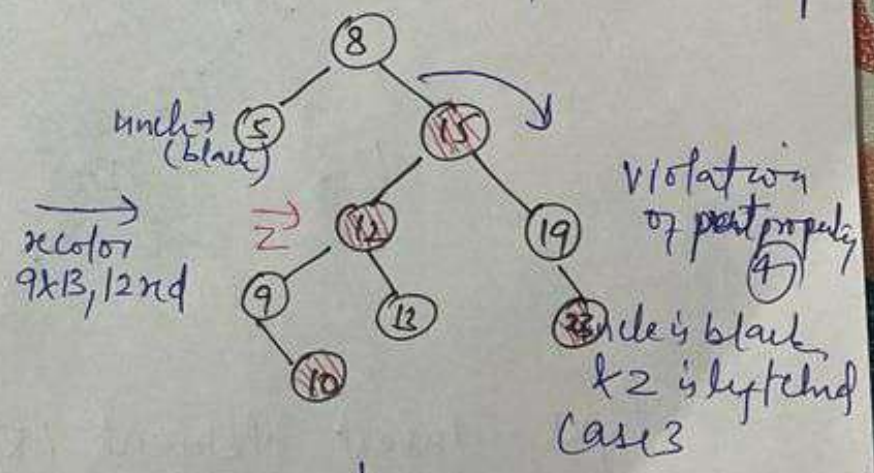 8
uncle→ 5 15
(black)
Violation
of property
4
recolor
9&13, 12 red
Z 12 19
9 13 23
uncle is black
& z is left child
10
Case 3